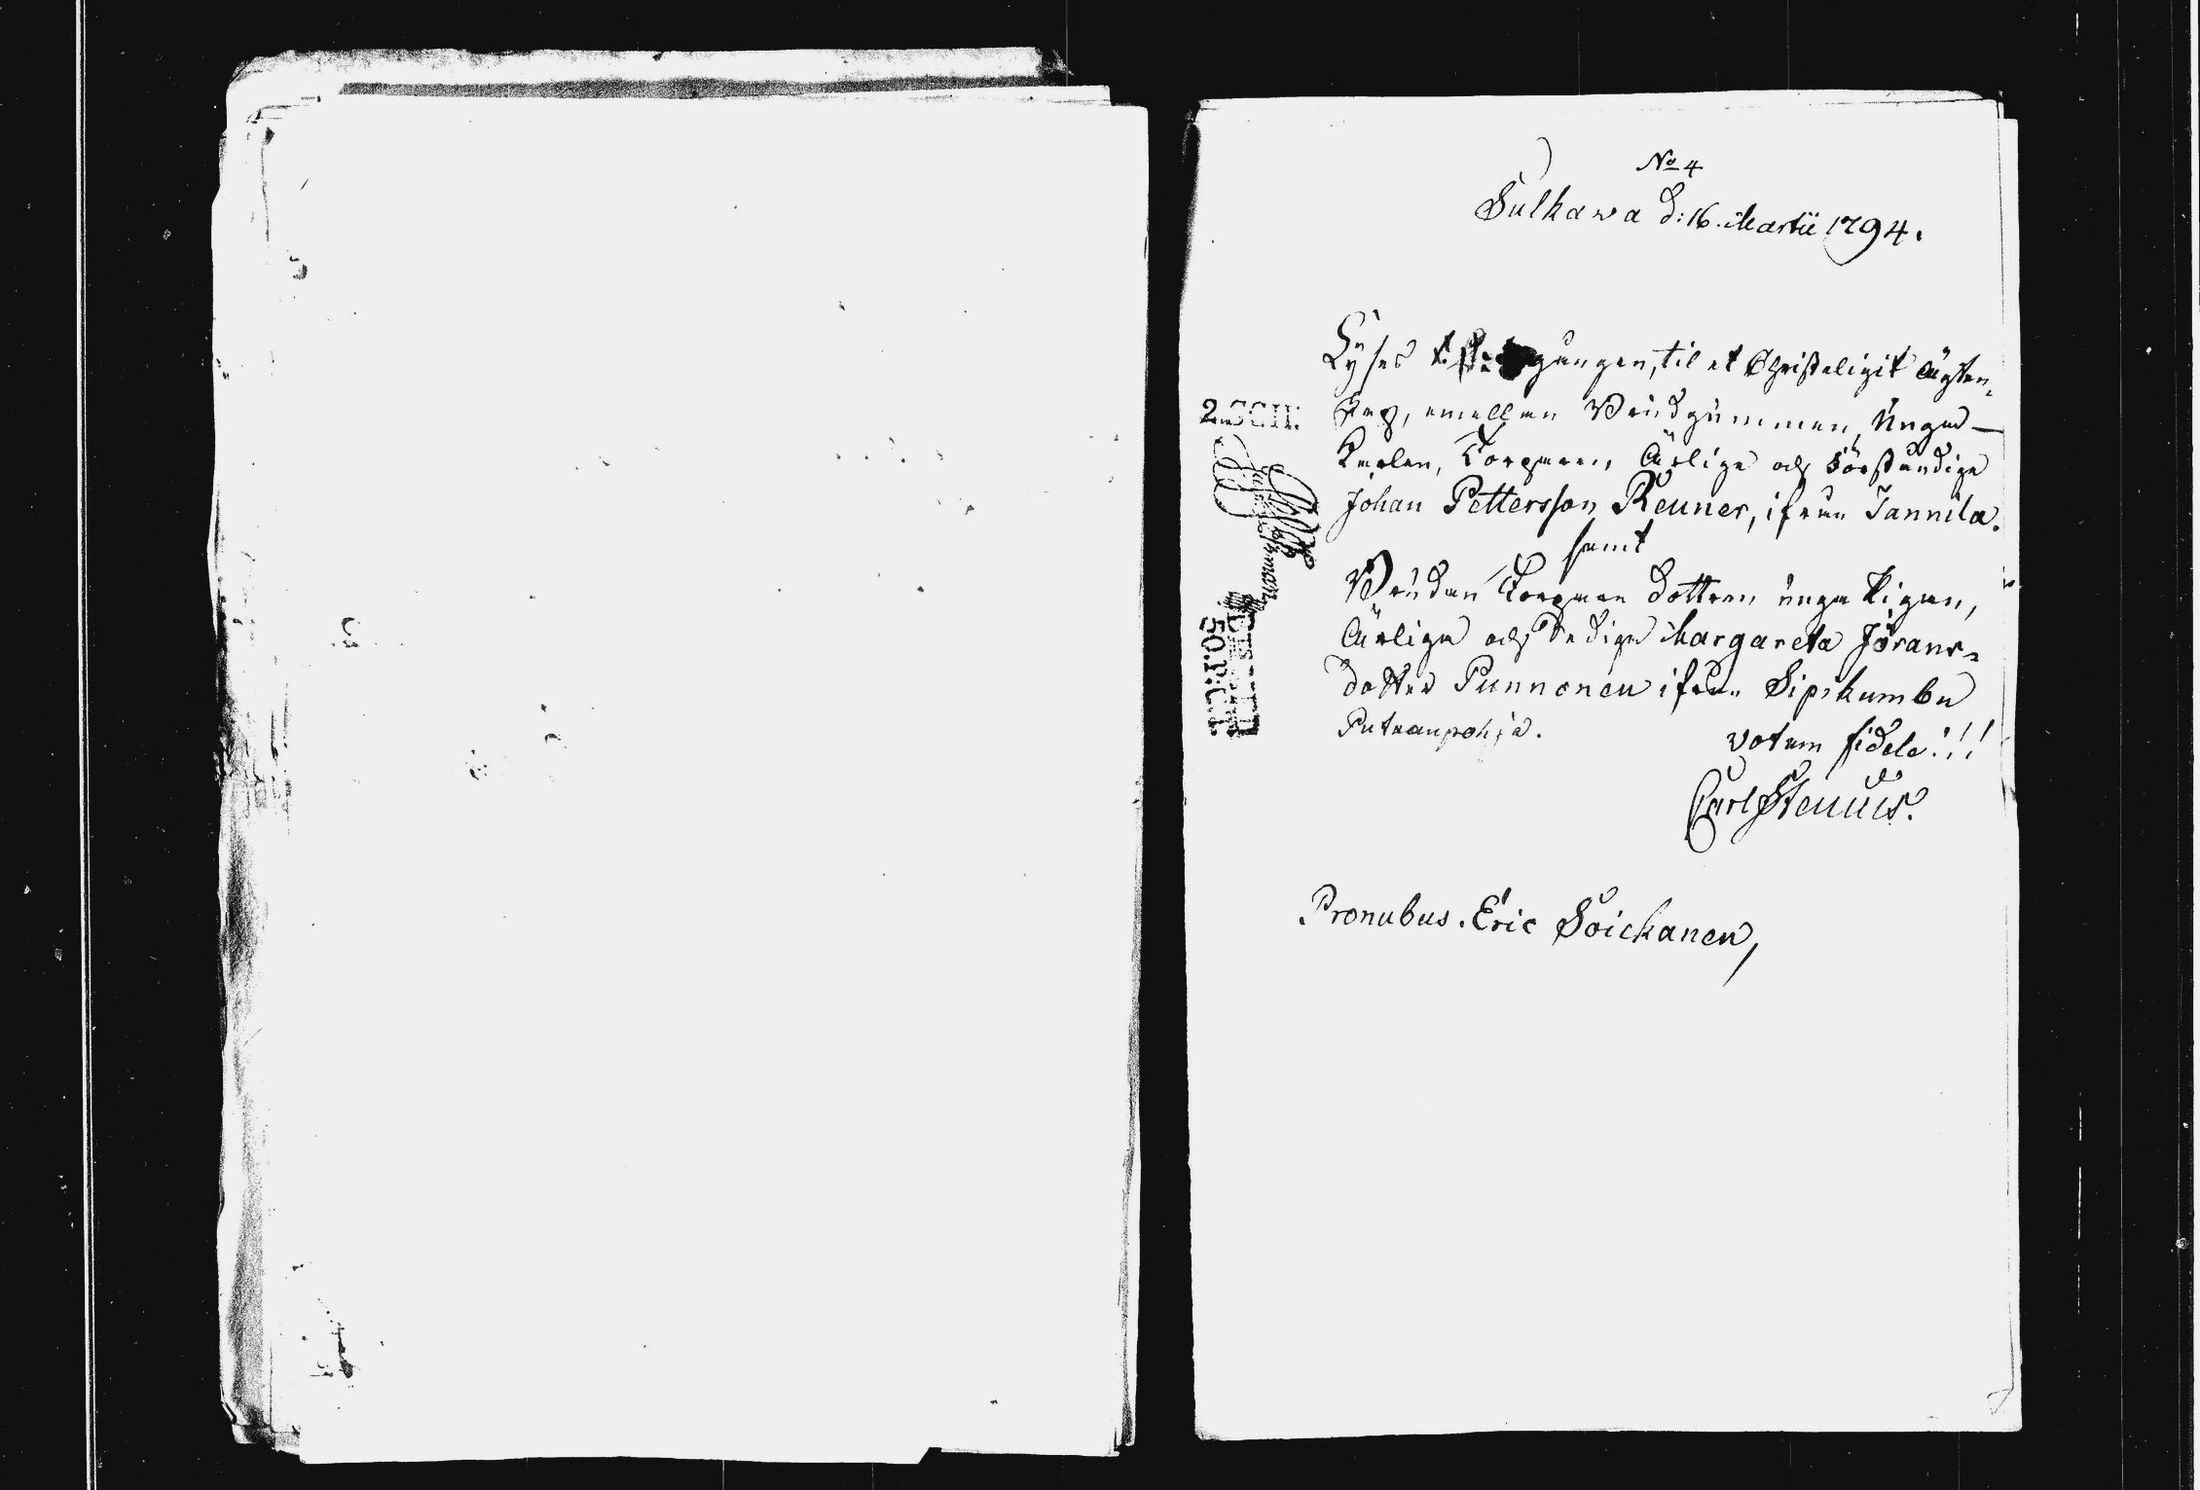 No 4
Sulkawa d: 16. Martii 1794.
Lyses första gången, til et Christeligit Ägten-
skap, emellan Brudgummen, Unga
Karlen, Torparen, Ärlige och Förståndige
Johan Pettersson Reuner, ifrån Tannila.
samt
Brudan Torpare dottren unga Pigan,
Ärliga och Dediga Margareta Jörans-
dotter Punnonen ifrån Sipskumbu
Putraupohja.
votum fidele!!!
Carl
Pronubus. Eric Soickanen,
2. SCH: